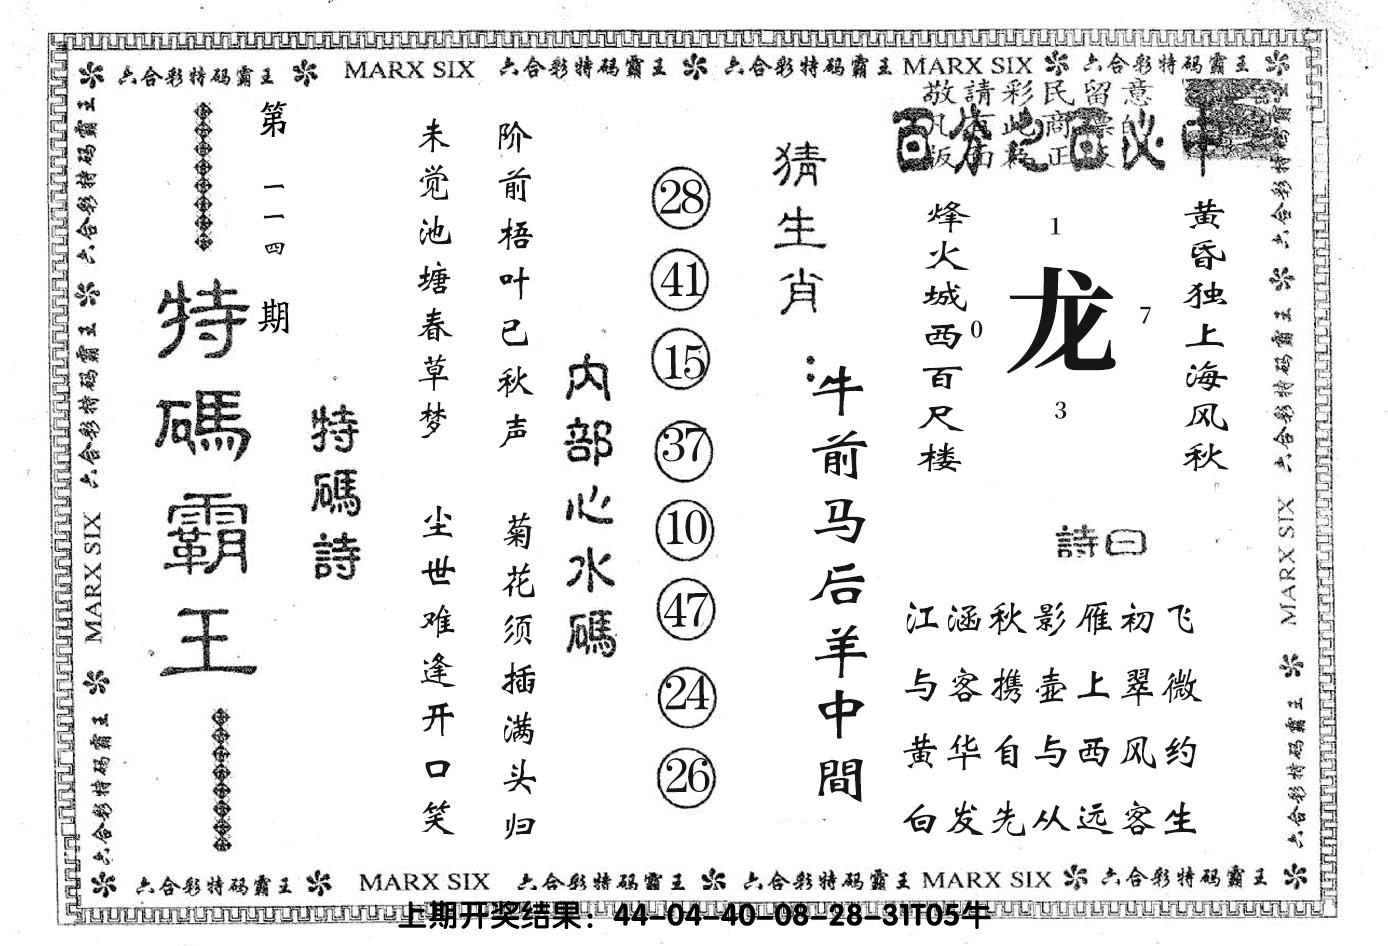 六合彩特码霸王 MARX SIX 六合彩特码霸王 六合彩特码霸王 MARX SIX 六合彩特码霸王
敬請彩民留意
百分之百必中
黄昏独上海风秋
1
龙
0
7
3
烽火城西百尺楼
詩曰
江涵秋影雁初飞
与客携壶上翠微
黄华自与西风约
白发先从远客生
猜生肖:
牛前马后羊中間
28
41
15
37
10
47
24
26
内部心水碼
阶前梧叶已秋声
未觉池塘春草梦
菊花须插满头归
尘世难逢开口笑
特碼詩
第一一四期
特碼霸王
六合彩特码霸王 六合彩特码霸王 MARX SIX 六合彩特码霸王
六合彩特码霸王 六合彩特码霸王 MARX SIX 六合彩特码霸王
六合彩特码霸王 MARX SIX 六合彩特码霸王 六合彩特码霸王 MARX SIX 六合彩特码霸王
上期开奖结果：44-04-40-08-28-31T05牛